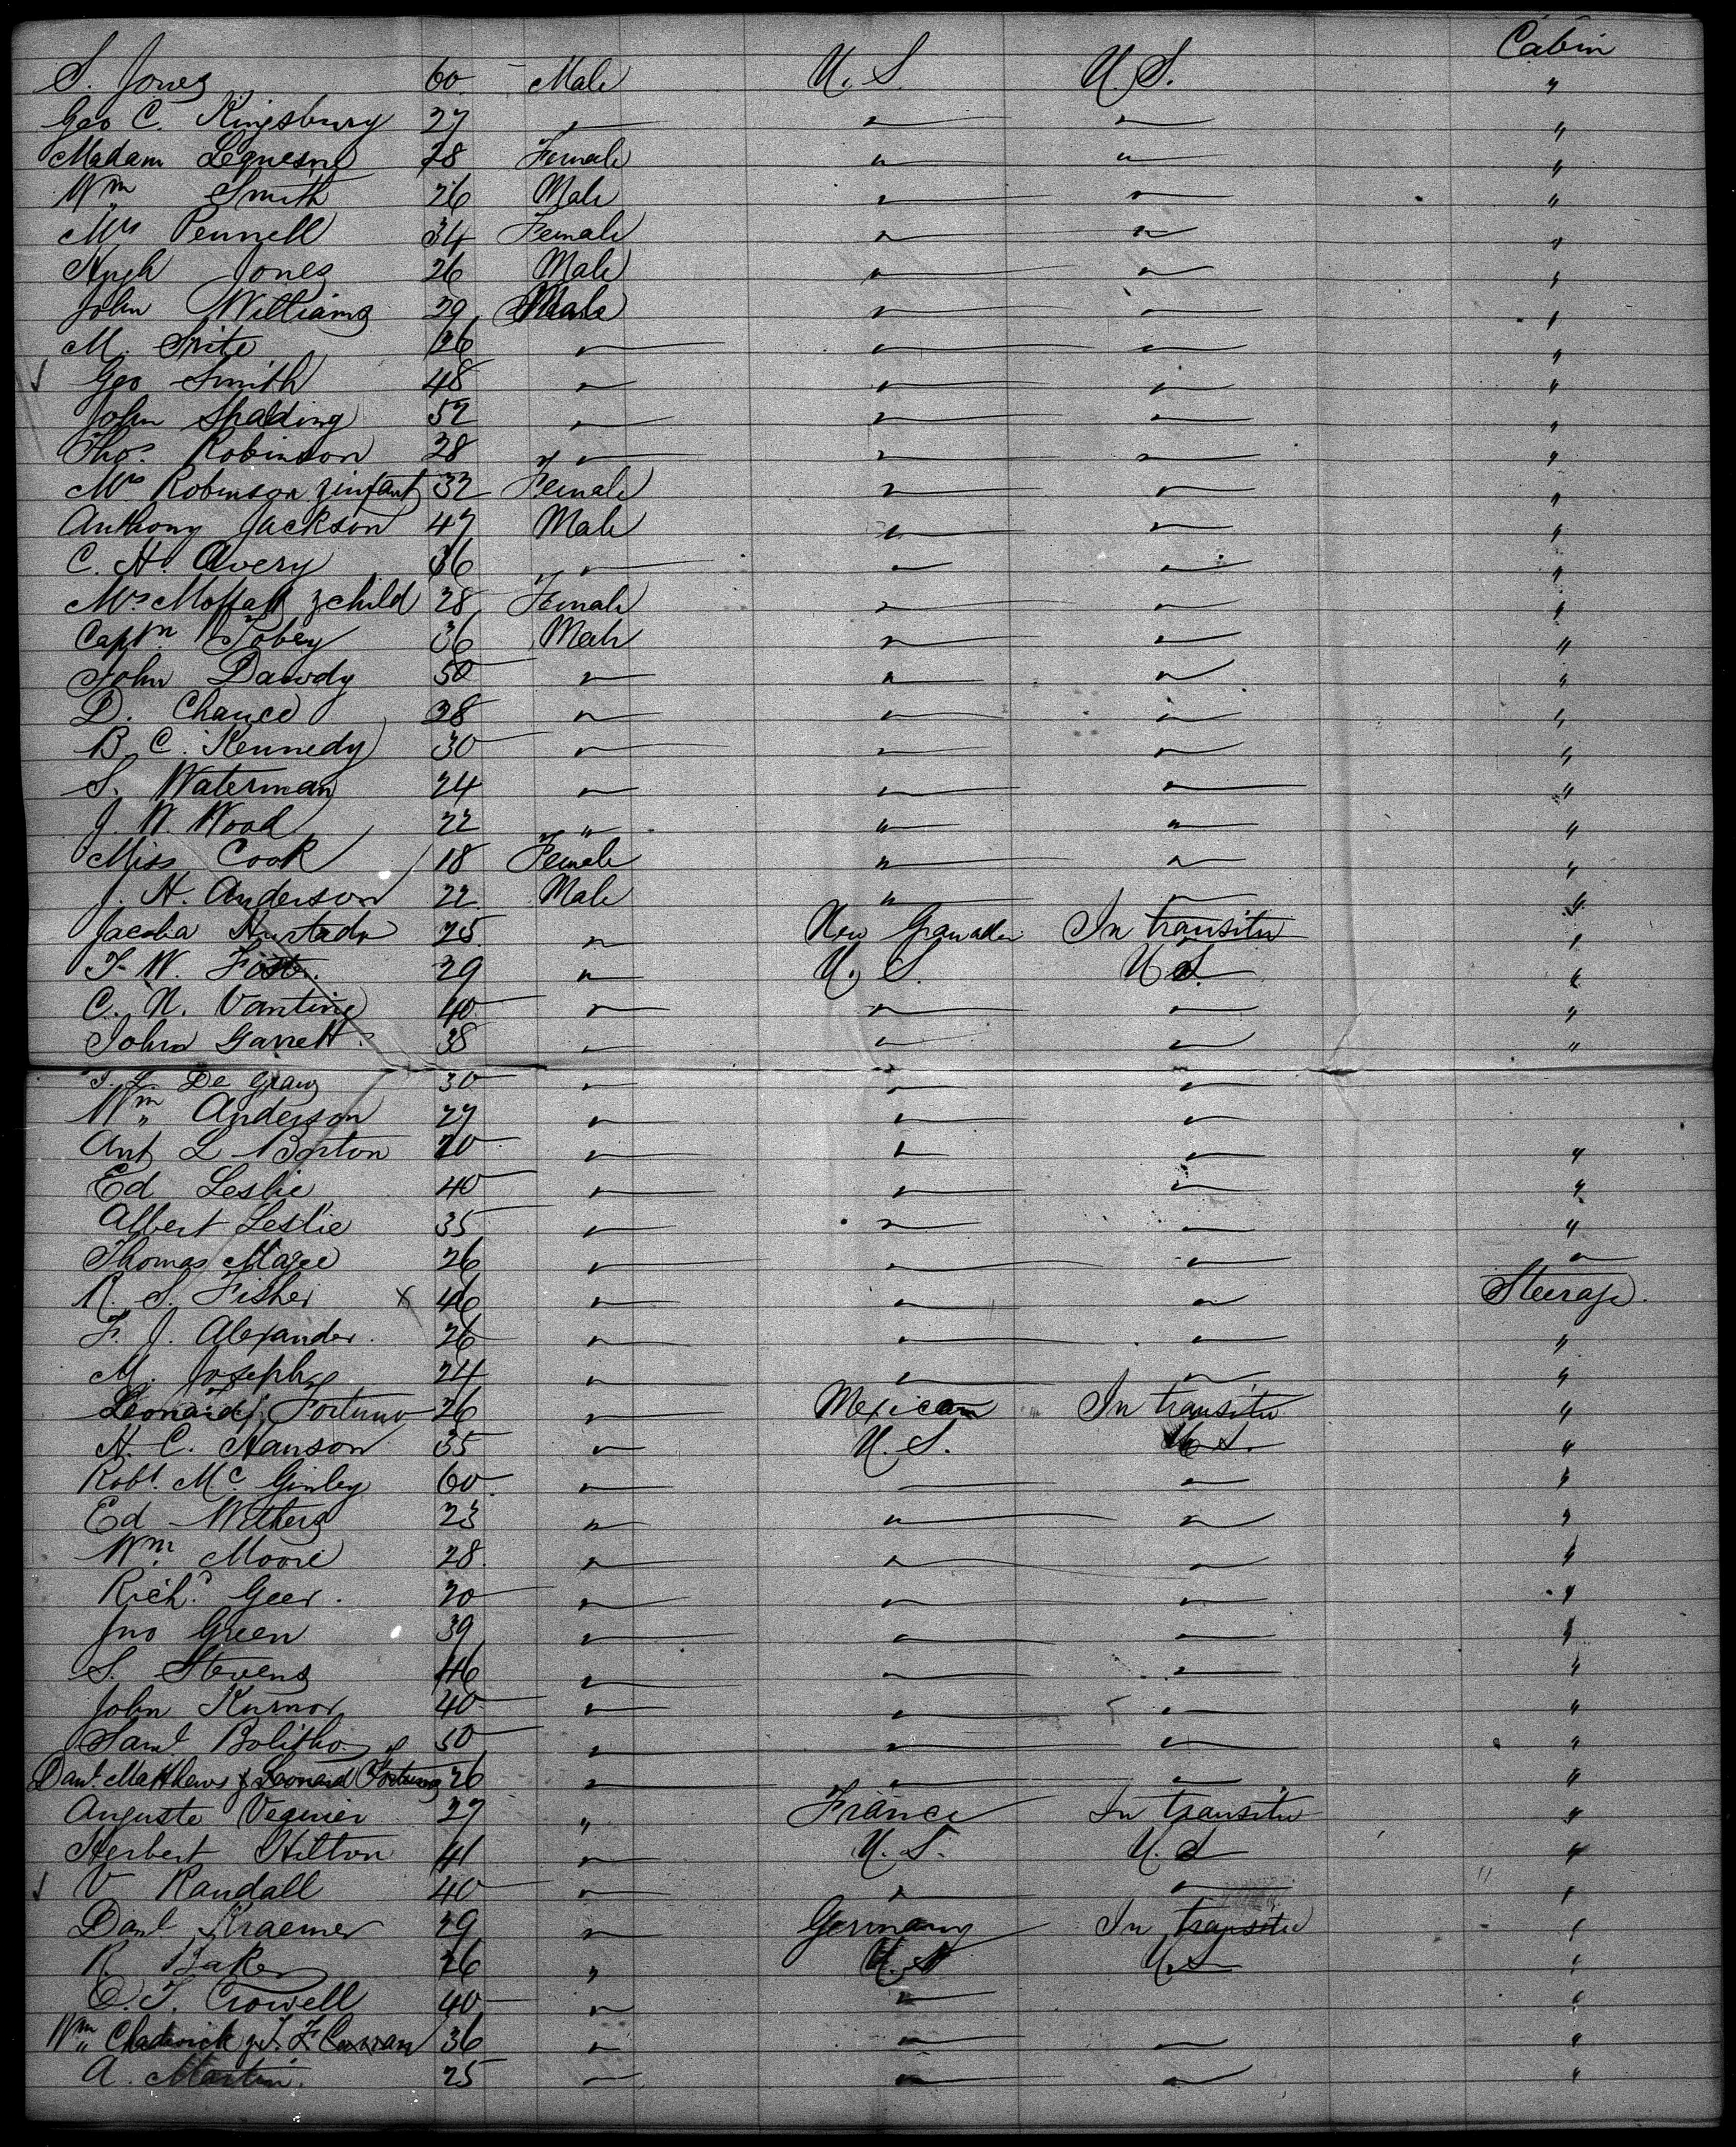 Cabin
S. Jones 60 Male U. S. U. S. "
Geo C. Kingsbury 27 " " " "
Madam Lequesne 28 Female " " "
Wm Smith 26 Male " " "
Mrs Pennell 34 Female " " "
Hugh Jones 26 Male " " "
John Williams 29 Male " " "
M. Spite 26 " " " "
Geo Smith 48 " " " "
John Spalding 52 " " " "
Thos. Robinson 28 " " " "
Mrs Robinson & infant 32 Female " " "
Anthony Jackson 47 Male " " "
C. H. Avery 36 " " " "
Mrs Moffatt & child 28 Female " " "
Captn. Tobey 36 Male " " "
John Dawdy 50 " " " "
D. Chance 28 " " " "
B. C. Kennedy 30 " " " "
S. Waterman 24 " " " "
J. W. Wood 22 " " " "
Miss Cook 18 Female " " "
J. H. Anderson 22 Male " " "
Jacoba Hurtado 25 " New Granada In transitu "
T. W. Foster 29 " U. S. U S. "
C. N. Vantine 40 " " " "
John Garrett 38 " " " "
De Graw 30 " " "
Wm Anderson 27 " " "
Ant L Borton 20 " " " "
Ed Leslie 40 " " " "
Albert Leslie 35 " " " "
Thomas Magee 26 " " " "
R. S. Fisher x 46 " " " Steerage.
F. J. Alexander. 26 " " " "
M. Josephs 24 " " " "
Leonard Fortuno 26 " Mexican In transitu "
H. C. Hanson 35 " U. S. U S. "
Robt. Mc Ginley 60 " " " "
Ed Withers 23 " " " "
Wm. Moore 28 " " " "
Richd. Geer. 20 " " " "
Jno Green 39 " " " "
S. Stevens 46 " " " "
John Kurnor 40 " " " "
Saml Bolitho 50 " " " "
Danl. Matthews & Leonard Fortuno 26 " " " "
Auguste Vequier 27 " France In transitu "
Herbert Hilton 41 " U. S. U. S "
V Randall 40 " " " "
Danl Kraemer 29 " Germany In transitu "
R Baker 26 " U. S U. S "
O. T. Crowell 40 " " "
Wm Chadwick & J. F. Curran 36 " " " "
A. Martin. 25 " " " "